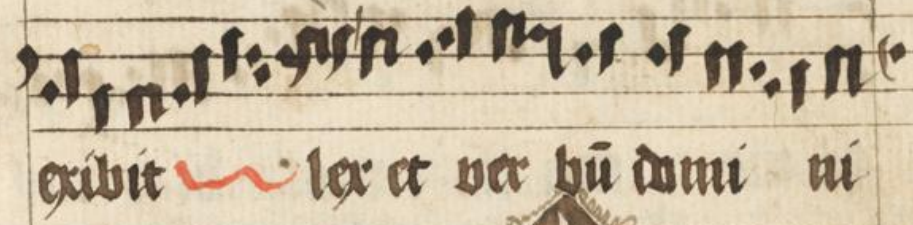 exibit lex et ver bū domi ni